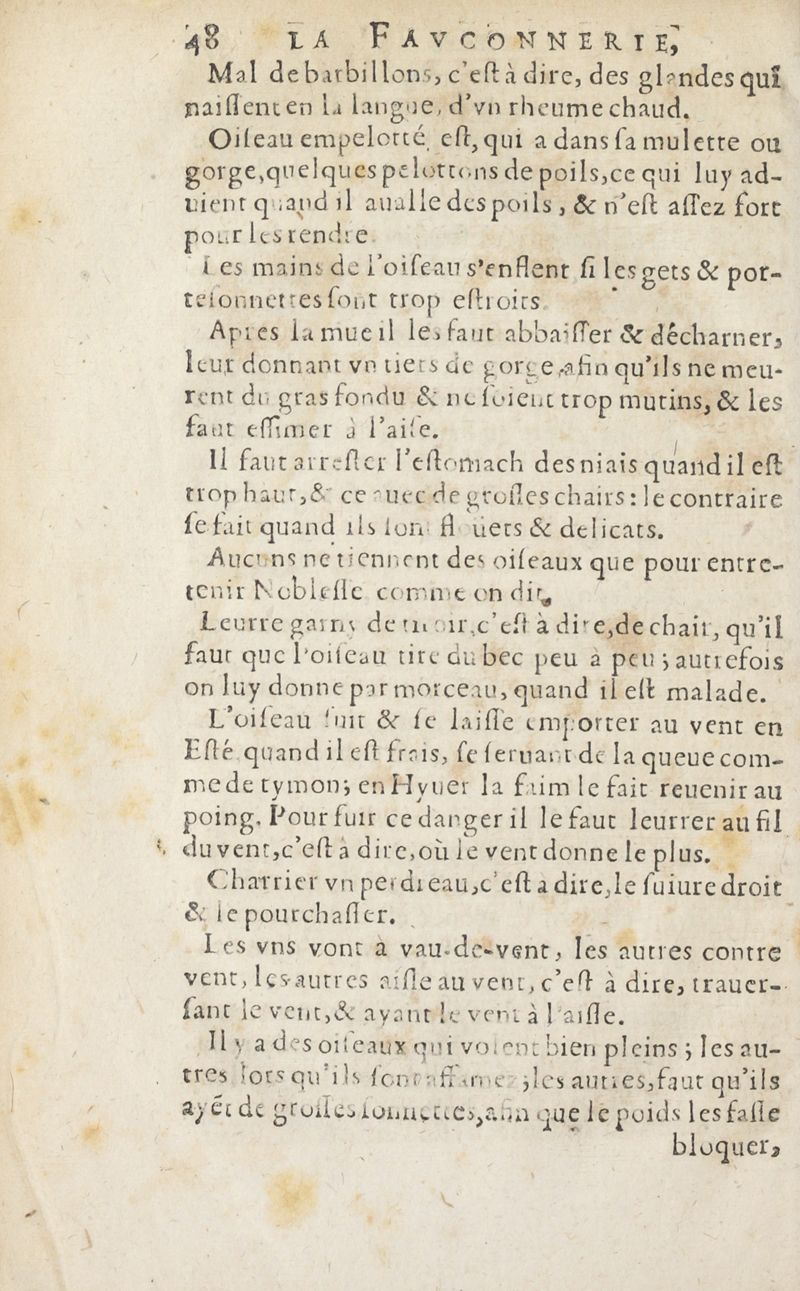 48 LA FAVCONNERIE,
Mal de barbillons, c'eſt à dire, des glandes qui
naiſſent en la langue, d'vn rheume chaud.
Oiſeau empelotté, eſt, qui a dans ſa mulette ou
gorge, quelques pelottons de poils, ce qui luy ad-
uient quand il aualle des poils, & n'eſt aſſez fort
pour les rendre.
Les mains de l'oiſeau s'enflent ſi les gets & por-
teſonnettes ſont trop eſtroits.
Apres la mue il les faut abbaiſſer & décharner,
leur donnant vn tiers de gorge, afin qu'ils ne meu-
rent du gras fondu & ne ſoient trop mutins, & les
faut eſſimer à l'aiſe.
Il faut arreſter l'eſtomach des niais quand il eſt
trop haut, & ce auec de groſſes chairs : le contraire
ſe fait quand ils ſont fluets & delicats.
Aucuns ne tiennent des oiſeaux que pour entre-
tenir Nobleſſe comme on dit,
Leurre garny de tiroir, c'eſt à dire, de chair, qu'il
faut que l'oiſeau tire du bec peu à peu ; autrefois
on luy donne par morceau, quand il eſt malade.
L'oiſeau fuit & ſe laiſſe emporter au vent en
Eſté quand il eſt frais, ſe ſeruant de la queue com-
me de tymon; en Hyuer la faim le fait reuenir au
poing. Pour fuir ce danger il le faut leurrer au fil
du vent, c'eſt à dire, où le vent donne le plus.
Charrier vn perdreau, c'eſt a dire, le ſuiure droit
& le pourchaſſer.
Les vns vont à vau-de-vent, les autres contre
vent, les autres aiſle au vent, c'eſt à dire, trauer-
ſant le vent, & ayant le vent à l'aiſle.
Il y a des oiſeaux qui volent bien pleins ; les au-
tres lors qu'ils ſont affamez ; les autres, faut qu'ils
ayẽt de groſſes ſonnettes, afin que le poids les faſſe
bloquer,